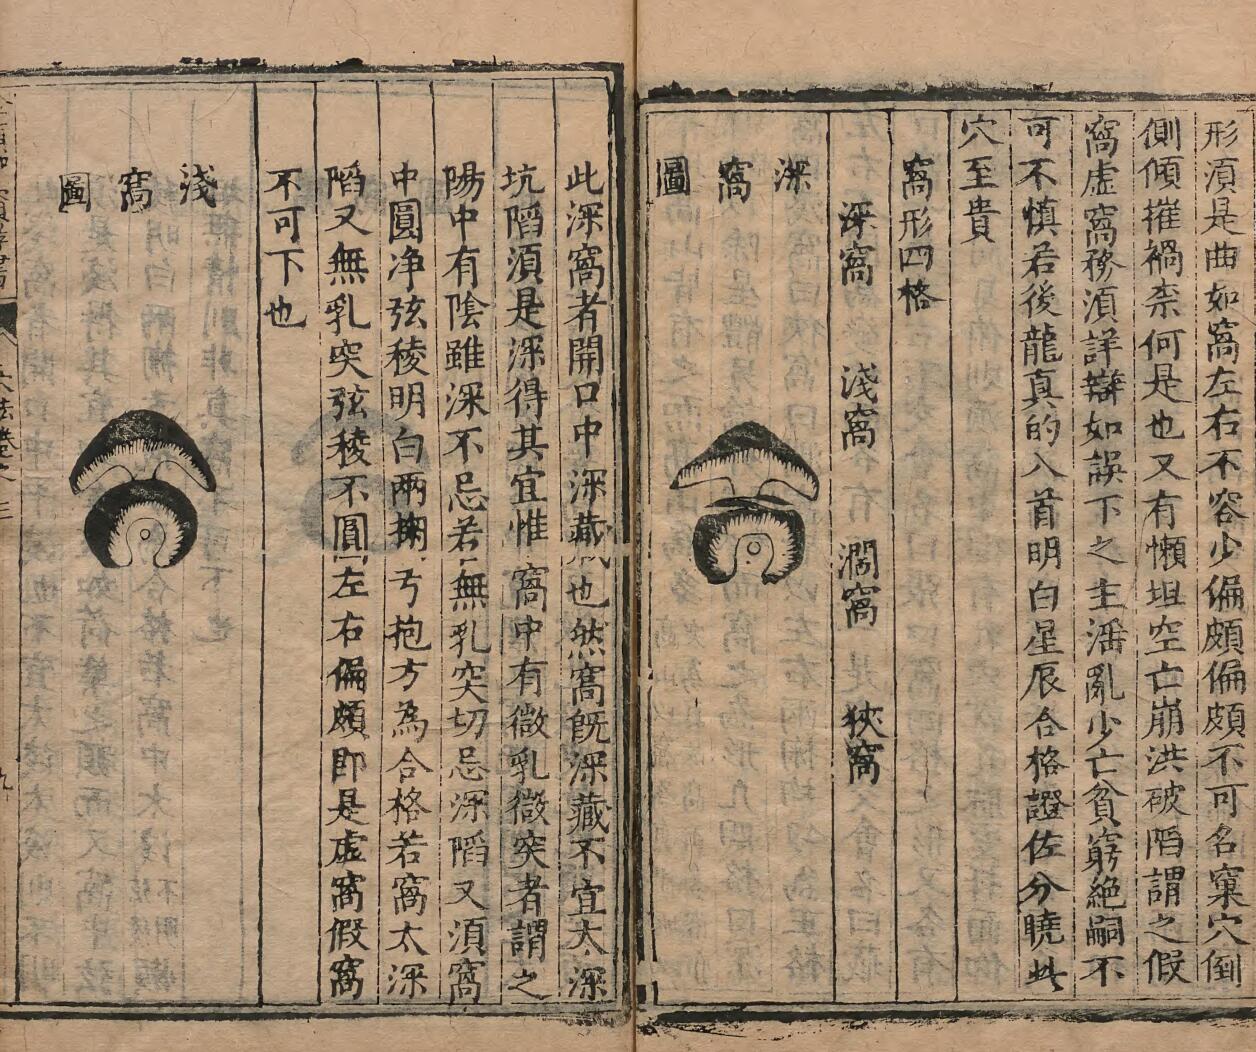 形須是曲如窩左右不容少偏頗偏頗不可名窠穴倒
側傾摧禍柰何是也又有懶坦空亡崩洪破陷謂之假
窩虛窩務須詳辯如誤下之主潘亂少亡貧窮絶嗣不
可不慎若後龍真的入首明白星辰合格證佐分曉此
穴至貴
窩形四格
深窩 淺窩 濶窩 狹窩
深
窩
圖
此深窩者開口中深藏也然窩既深藏不宜太深
坑陷須是深得其宜惟窩中有微乳微突者謂之
陽中有陰雖深不忌若無乳突切忌深陷又須窩
中圓净弦稜明白兩掬弓抱方為合格若窩太深
陷又無乳突弦稜不圓左右偏頗即是虛窩假窩
不可下也
淺
窩
圖